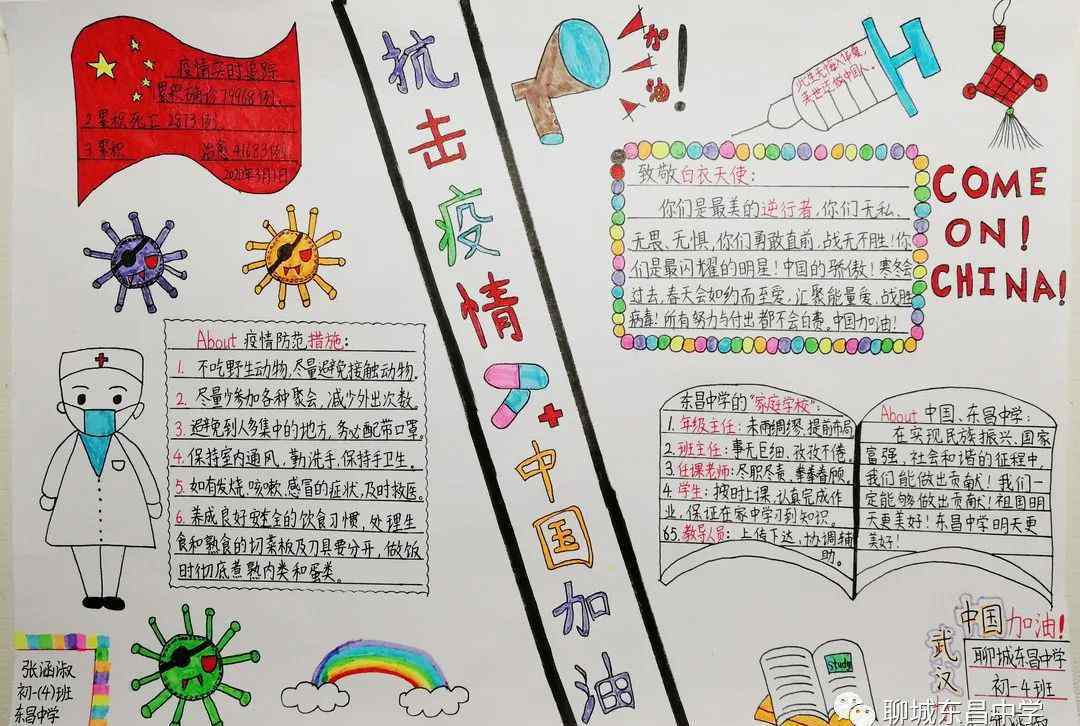 疫情实时追踪
累积确诊79968例、
2.累积死亡 2873例、
3.累积 治愈41683例、
2020年3月1日
抗击疫情
中国加油
加油!
此生无悔入华夏,
来世还做中国人。
致敬白衣天使:
你们是最美的逆行者,你们无私、
无畏、无惧,你们勇敢直前,战无不胜!你
们是最闪耀的明星!中国的骄傲!寒冬会
过去,春天会如约而至爱,汇聚能量爱,战胜
病毒!所有努力与付出都不会白费。中国加油!
COME
ON!
CHINA!
About 疫情防范措施:
1. 不吃野生动物,尽量避免接触动物。
2. 尽量少参加各种聚会,减少外出次数。
3. 避免到人多集中的地方,务必配带口罩。
4. 保持室内通风,勤洗手,保持手卫生。
5. 如有发烧,咳嗽,感冒的症状,及时救医。
6. 养成良好安全的饮食习惯,处理生
食和熟食的切菜板及刀具要分开,做饭
时彻底煮熟肉类和蛋类。
东昌中学的“家庭学校”:
1. 年级主任:未雨绸缪、提前布局
2. 班主任:事无巨细、孜孜不倦。
3. 任课老师:尽职尽责,拳拳眷顾。
4. 学生:按时上课,认真完成作
业,保证在家中学习到知识。
5. 教导人员:上传下达,协调辅
助。
About 中国、东昌中学:
在实现民族振兴、国家
富强、社会和谐的征程中,
我们能做出贡献!我们一
定能够做出贡献!祖国明
天更美好!东昌中学明天更
美好!
张涵淑
初一(4)班
东昌中学
study
中国加油!
武汉
聊城东昌中学
初一4班
聊城东昌中学